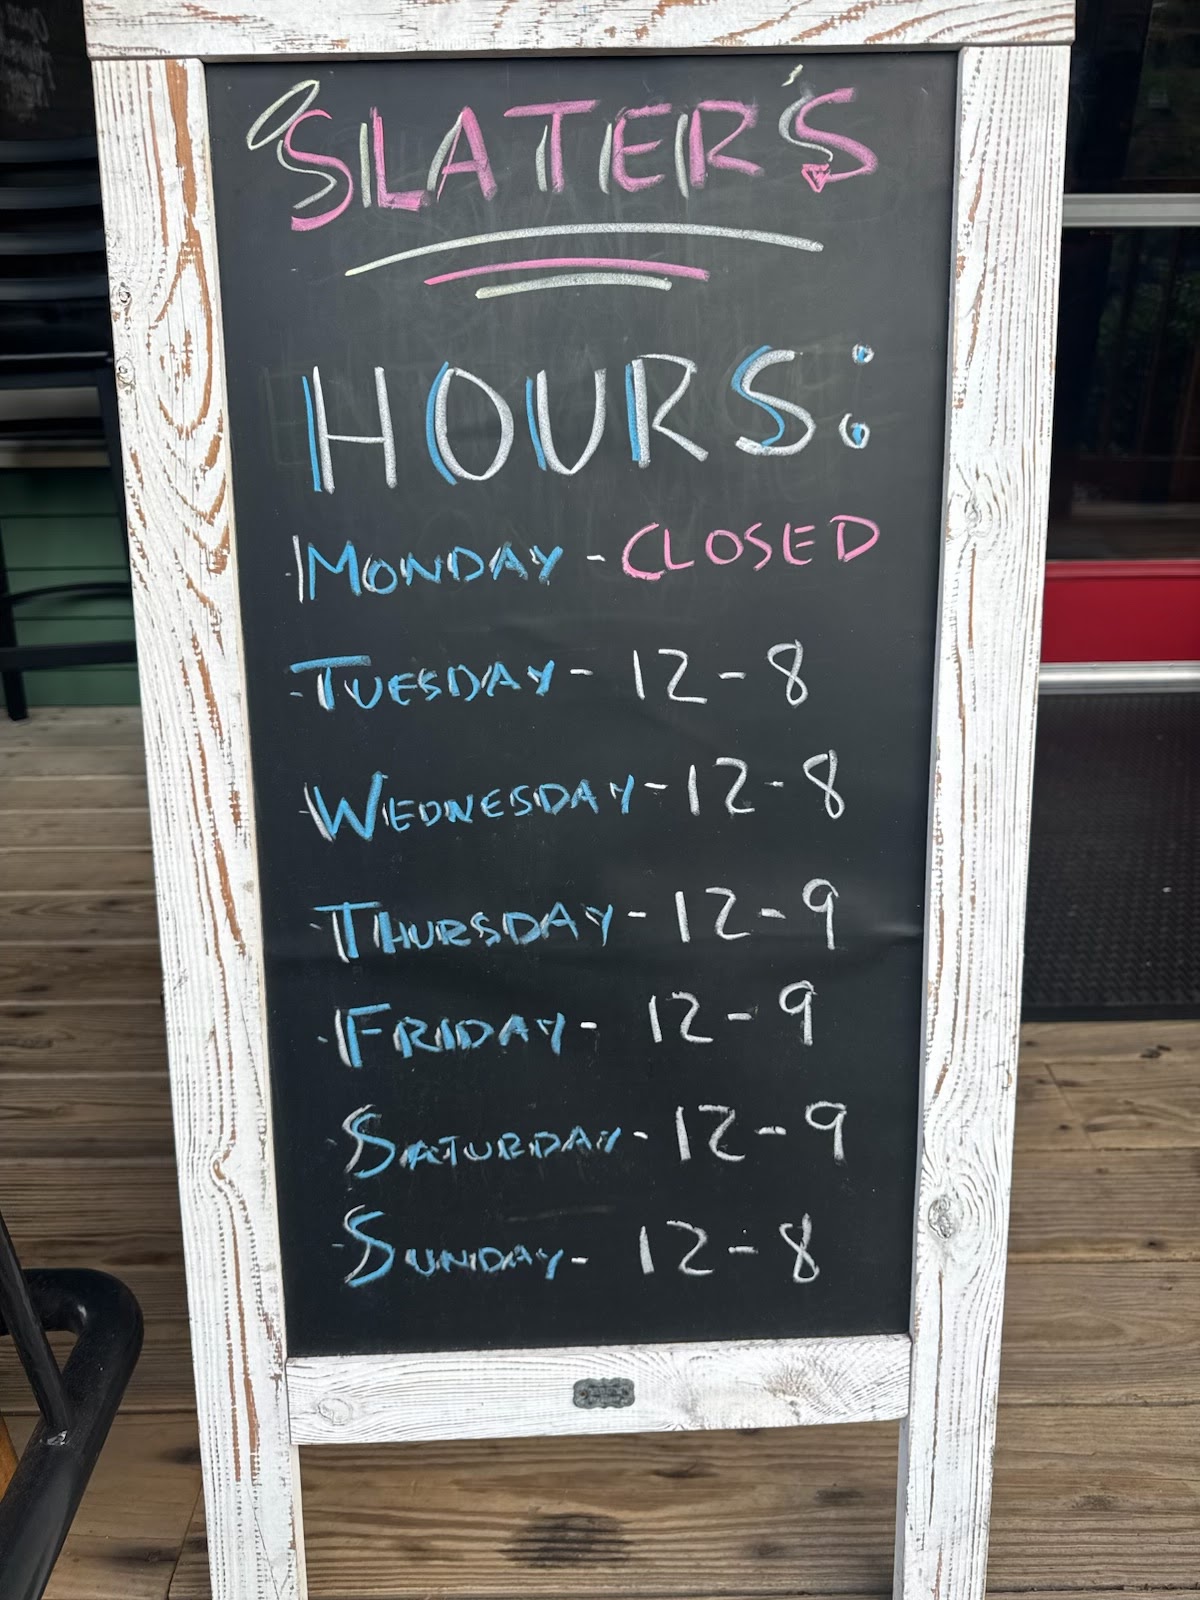 SLATER'S
HOURS:
- MONDAY - CLOSED
- TUESDAY - 12 - 8
- WEDNESDAY - 12 - 8
- THURSDAY - 12 - 9
- FRIDAY - 12 - 9
- SATURDAY - 12 - 9
- SUNDAY - 12 - 8